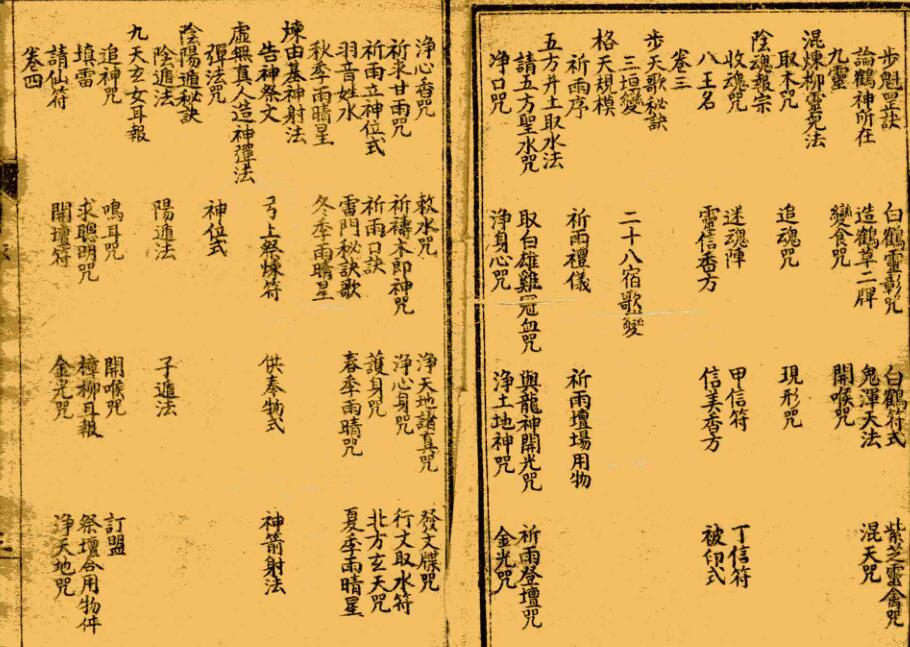 步魁罡訣 白鶴靈彰咒 白鶴符式 紫芝靈禽咒
論鶴神所在 造鶴草二牌 鬼渾天法 混天咒
九靈 變食咒 開喉咒
混煉柳靈児法
取木咒 追魂咒 現形咒
陰魂報宗
收魂咒 迷魂陣 甲信符 丁信符
八王名 靈信香方 信美香方 被印式
卷三
步天歌秘訣
三垣變 二十八宿歌變
格天規模
祈雨序 祈雨禮儀 祈雨壇場用物
五方井土取水法
請五方聖水咒 取白雄雞冠血咒 與龍神開光咒 祈雨登壇咒
净口咒 淨身心咒 淨土地神咒 金光咒
淨心香咒 敕水咒 淨天地諸真咒 發文牒咒
祈求甘雨咒 祈禱木郎神咒 淨心身咒 行文取水符
祈雨立神位式 祈雨口訣 護身咒 北方玄天咒
羽音姓水 雷門秘訣歌 春季雨晴咒 夏季雨晴星
秋季雨晴星 冬季雨晴星
煉由基神射法
告神祭文 弓上祭煉符 供奉物式 神箭射法
虛無真人造神彈法
彈法咒 神位式
陰陽遁秘訣
陰遁法 陽遁法 子遁法
九天玄女耳報
追神咒 鳴耳咒 開喉咒 訂盟
填雷 求聰明咒 樟柳耳報 祭壇合用物件
請仙符 開壇符 金光咒 淨天地咒
卷四